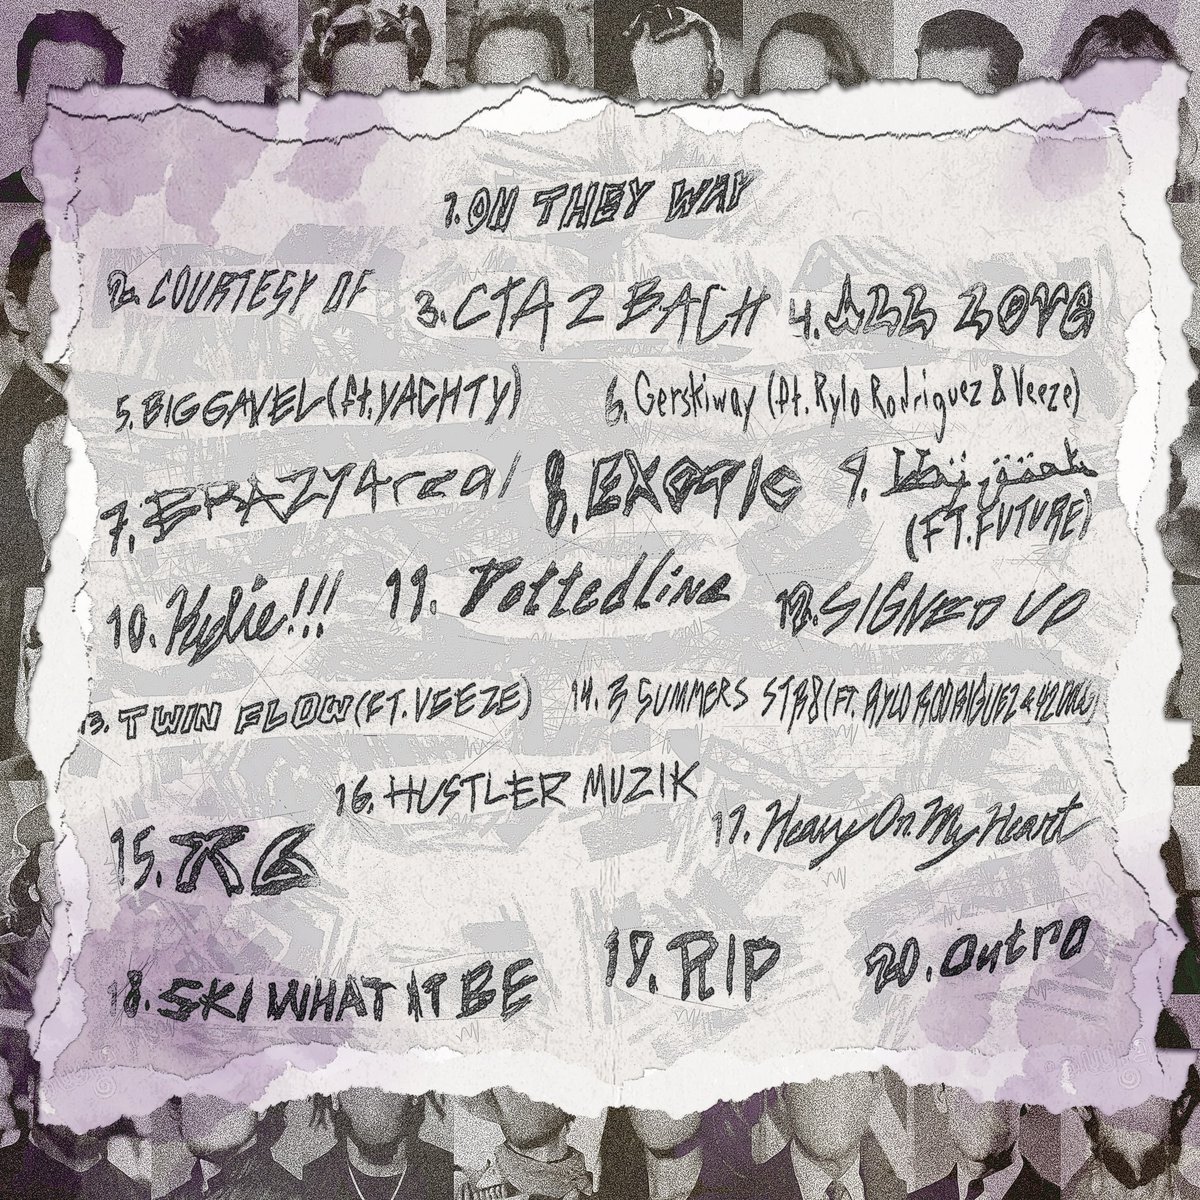 1. ON THEY WAY
2. COURTESY OF
3. CTA 2 BACH
4. ALL LOVE
5. BIGGAVEL (ft. YACHTY)
6. Gerskiway (ft. Rylo Rodriguez & Veeze)
7. ERRAZY4real
8. EXOTIC
9.
(FT. FUTURE)
10. Kylie!!!
11. Dotted Line
12. SIGNED UP
13. TWIN FLOW (FT. VEEZE)
14. 3 SUMMERS STR8 (FT. RYLO RODRIGUEZ & 42 DUGG)
15.
16. HUSTLER MUZIK
17. Heavy On My Heart
18. SKI WHAT IT BE
19. RIP
20. Outro